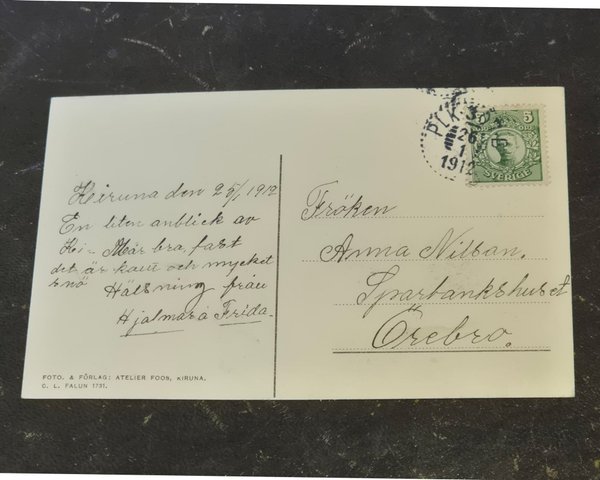 Kiruna den 25/1 1912
En liten anblick av
Ki- Mår bra, fast
det är kallt och mycket
snö Hälsning från
Hjalmar o Frida.
FOTO. & FÖRLAG: ATELIER FOOS, KIRUNA.
C. L. FALUN 1731.
PLK 30
26
1
1912
5
SVERIGE
Fröken
Anna Nilsan.
Sparbankshuset
Örebro.